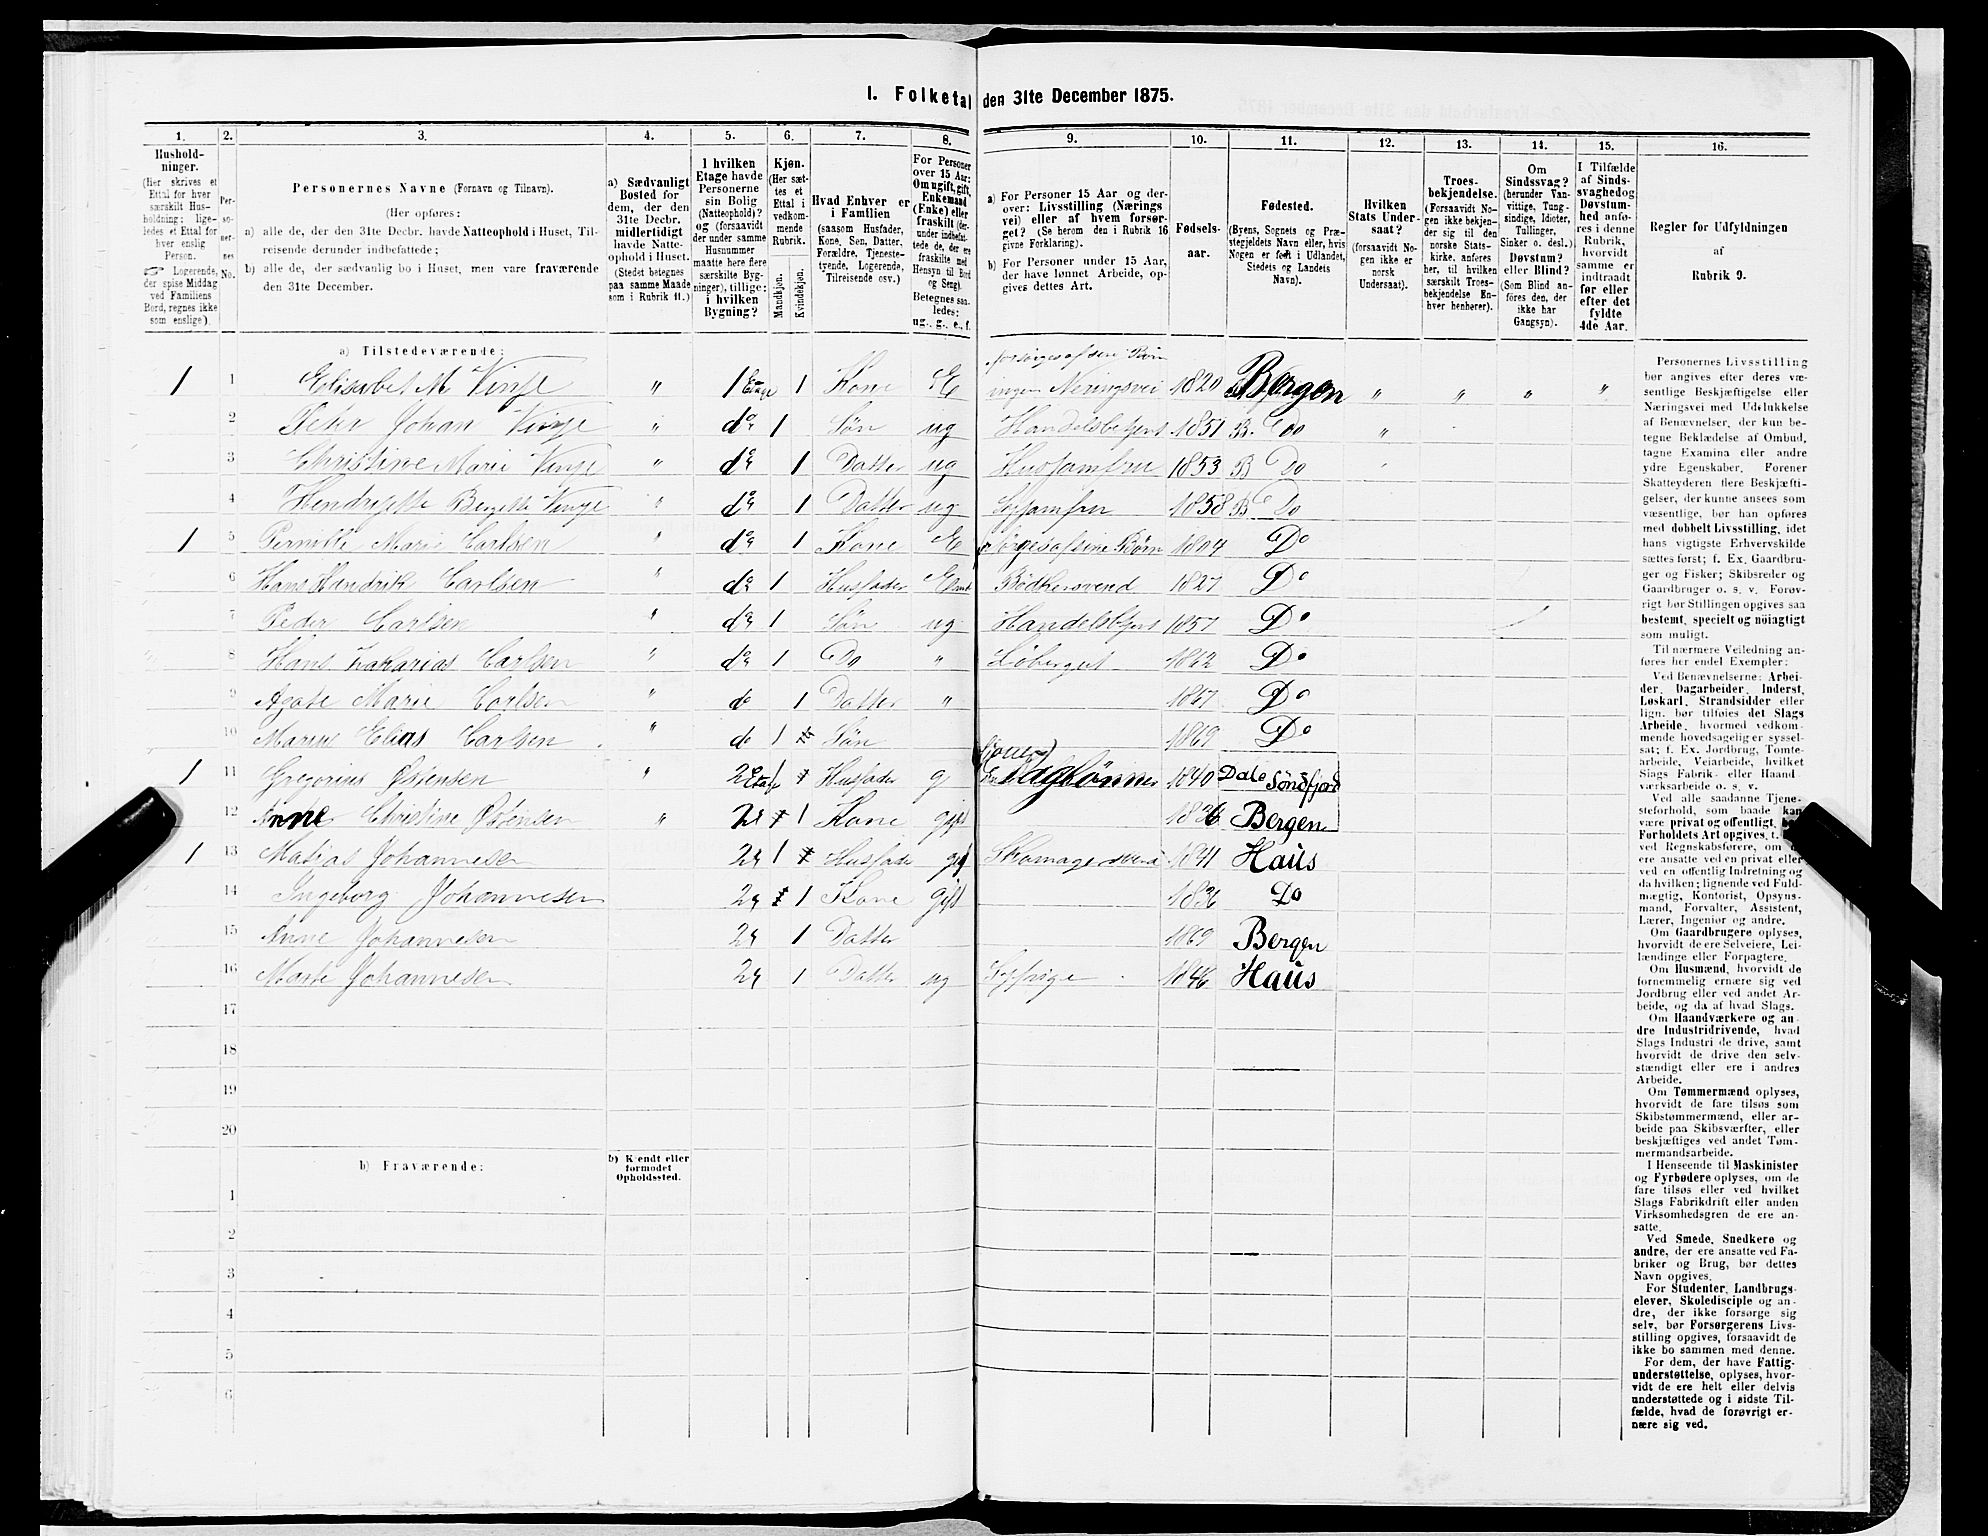 I. Folketal den 31te December 1875.
1. 2. 3. 4. 5. 6. 7. 8. 9. 10. 11. 12. 13. 14. 15. 16.
Hushold-
ninger.
(Her skrives et
Ettal for hver
særskilt Hus-
holdning; lige-
ledes et Ettal for
hver enslig
Person.
☞ Logerende,
der spise Middag
ved Familiens
Bord, regnes ikke
som enslige).
Per-
so-
ner-
nes
No.
Personernes Navne (Fornavn og Tilnavn).
(Her opføres:
a) alle de, der den 31te Decbr. havde Natteophold i Huset, Til-
reisende derunder indbefattede;
b) alle de, der sædvanlig bo i Huset, men vare fraværende
den 31te December.
a) Sædvanligt
Bosted for
dem, der den
31te Decbr.
midlertidigt
havde Natte-
ophold i Huset.
(Stedet betegnes
paa samme Maade
som i Rubrik 11.)
I hvilken
Etage havde
Personerne
sin Bolig
(Natteophold)?
og (forsaavidt
der under samme
Husnummer
maatte høre flere
særskilte Byg-
ninger), tillige:
i hvilken
Bygning?
Kjøn.
(Her sæt-
tes et
Ettal i
vedkom-
mende
Rubrik.
Mandkjøn.
Kvindekjøn.
Hvad Enhver er
i Familien
(saasom Husfader,
Kone, Søn, Datter,
Forældre, Tjeneste-
tyende, Logerende,
Tilreisende osv.)
For Personer
over 15 Aar:
Om ugift, gift,
Enkemand
(Enke) eller
fraskilt (der-
under indbefat-
tede de, der ere
fraskilte med
Hensyn til Bord
og Seng).
Betegnes saa-
ledes:
ug., g., e., f.
a) For Personer 15 Aar og der-
over: Livsstilling (Nærings
vei) eller af hvem forsør-
get? (Se herom den i Rubrik 16
givne Forklaring).
b) For Personer under 15 Aar,
der have lønnet Arbeide, op-
gives dettes Art.
Fødsels-
aar.
Fødested.
(Byens, Sognets og Præ-
stegjeldets Navn eller, hvis
Nogen er født i Udlandet,
Stedets og Landets
Navn).
Hvilken
Stats Under-
saat?
(forsaavidt No-
gen ikke er
norsk
Undersaat).
Troes-
bekjendelse.
(Forsaavidt No-
gen ikke bekjen-
der sig til den
norske Stats-
kirke, anføres
her, til hvilken
særskilt Troes-
bekjendelse En-
hver henhører).
Om
Sindssvag?
(herunder Van-
vittige, Tung-
sindige, Idioter,
Tullinger,
Sinker o. desl.)
Døvstum?
eller Blind?
(Som Blind an-
føres den, der
ikke har
Gangsyn).
I Tilfælde
af Sinds-
svaghed og
Døvstum-
hed anfø-
res i denne
Rubrik,
hvorvidt
samme er
indtraadt
før eller
efter det
fyldte
4de Aar.
Regler for Udfyldningen
af
Rubrik 9.
a) Tilstedeværende:
1 1 Elisabet M Vinje " 1 Etage 1 Kone E ingen Næringsvei 1820 Bergen " " " "
2 Peter Johan Vinje " do 1 Søn ug Handelsbetjent 1851 B. Do "
3 Christine Marie Vinje " do 1 Datter ug Husjomfru 1853 B Do
4 Hendrijette Bergette Vinje " do 1 Datter ug Syjomfru 1858 B Do
1 5 Pernille Marie Carlsen " do 1 Kone E forsørges af sine Børn 1804 Do
6 Hans Hendrik Carlsen " do 1 Husfader Bødkersvend 1827 Do
7 Peder Carlsen " do 1 Søn ug Handelsbtjent 1857 Do
8 Hans Zakarias Carlsen " do 1 Do " Løbergut 1862 Do
9 Agate Marie Carlsen " do 1 Datter " 1867 Do
10 Marius Elias Carlsen " do 1 Søn 1869 Do
1 11 Gregorius Østensen " 2 Etage 1 Husfader g Daglønner 1840 Dale Søndfjord
12 Anne Christine Østensen " 2 1 Kone gift 1836 Bergen
1 13 Matias Johannesen 2 1 Husfader gift Skomagersvend 1841 Haus
14 Ingeborg Johannesen 2 1 Kone gift 1836 Do
15 Anne Johannesen 2 1 Datter 1869 Bergen
16 Marte Johannesen 2 1 Datter ug Sypige 1846 Haus
17
18
19
20
b) Fraværende:
b) Kjendt eller
formodet
Opholdssted.
1
2
3
4
5
6
Personernes Livsstilling
bør angives efter deres væ-
sentlige Beskjæftigelse eller
Næringsvei med Udelukkelse
af Benævnelser, der kun be-
tegne Beklædelse af Ombud,
tagne Examina eller andre
ydre Egenskaber. Forener
Skatteyderen flere Beskjæfti-
gelser, der kunne ansees som
væsentlige, bør han opføres
med dobbelt Livsstilling, idet
hans vigtigste Erhvervskilde
sættes først; f. Ex. Gaardbru-
ger og Fisker; Skibsreder og
Gaardbruger o. s. v. Forøv-
rigt bør Stillingen opgives saa
bestemt, specielt og nøiagtigt
som muligt.
Til nærmere Veiledning an-
føres her endel Exempler:
Ved Benævnelserne: Arbei-
der, Dagarbeider, Inderst,
Løskarl, Strandsidder eller
lign. bør tilføies det Slags
Arbeide, hvormed vedkom-
mende hovedsagelig er syssel-
sat; f. Ex. Jordbrug, Tomte-
arbeide, Veiarbeide, hvilket
Slags Fabrik- eller Haand-
værksarbeide o. s. v.
Ved alle saadanne Tjene-
steforhold, som baade kan
være privat og offentligt,
Forholdets Art opgives, t.
ved Regnskabsførere, om
ere ansatte ved en privat eller
ved en offentlig Indretning og
da hvilken; lignende ved Fuld-
mægtig, Kontorist, Opsyns-
mand, Forvalter, Assistent,
Lærer, Ingeniør og andre.
Om Gaardbrugere oplyses,
hvorvidt de ere Selveiere, Lei-
lændinge eller Forpagtere.
Om Husmænd, hvorvidt de
fornemmelig ernære sig ved
Jordbrug eller ved andet Ar-
beide, og da af hvad Slags.
Om Haandværkere og an-
dre Industridrivende, hvad
Slags Industri de drive, samt
hvorvidt de drive den selv-
stændigt eller ere i andres
Arbeide.
Om Tømmermænd oplyses,
hvorvidt de fare tilsøs som
Skibstømmermænd, eller ar-
beide paa Skibsværfter, eller
beskjæftiges ved andet Tøm-
mermandsarbeide.
I Henseende til Maskinister
og Fyrbødere oplyses, om de
fare tilsøs eller ved hvilket
Slags Fabrikdrift eller anden
Virksomhedsgren de ere an-
satte.
Ved Smede, Snedkere og
andre, der ere ansatte ved Fa-
briker og Brug, bør dettes
Navn opgives.
For Studenter, Landbrugs-
elever, Skoledisciple og an-
dre, der ikke forsørge sig
selv, bør Forsørgerens Livs-
stilling opgives, forsaavidt de
ikke bo sammen med denne.
For dem, der have Fattig-
understøttelse, oplyses, hvor-
vidt de ere helt eller delvis
understøttede og i sidste Til-
fælde, hvad de forøvrigt er-
nære sig ved.